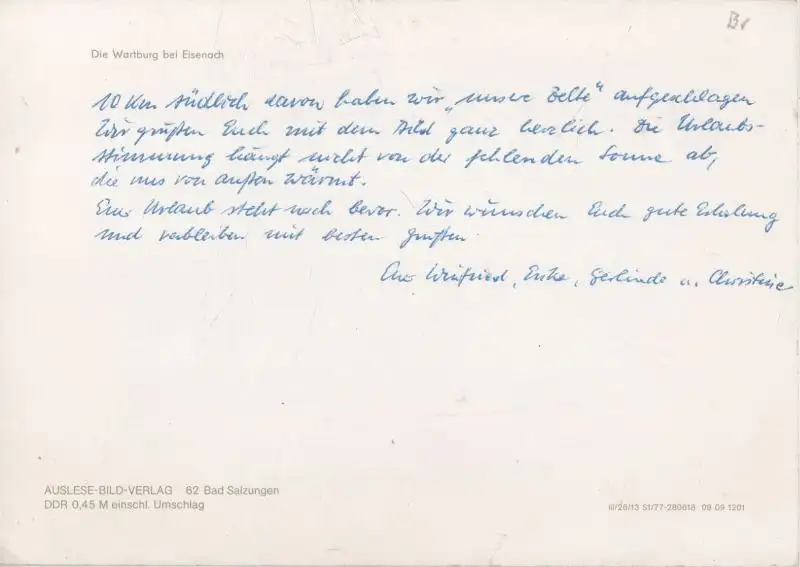 Br
Die Wartburg bei Eisenach
10 Km südlich davon haben wir „unsere Zelte" aufgeschlagen
Wir grüßen Euch mit dem Bild ganz herzlich. Die Urlaubs-
stimmung hängt nicht von der fehlenden Sonne ab,
die uns von außen wärmt.
Euer Urlaub steht noch bevor. Wir wünschen Euch gute Erholung
und verbleiben mit besten Grüßen
Eure Winfried, Gerlinde u. Christine
AUSLESE-BILD-VERLAG 62 Bad Salzungen
DDR 0,45 M einschl. Umschlag
III/26/13 S1/77-280618 09 09 1201